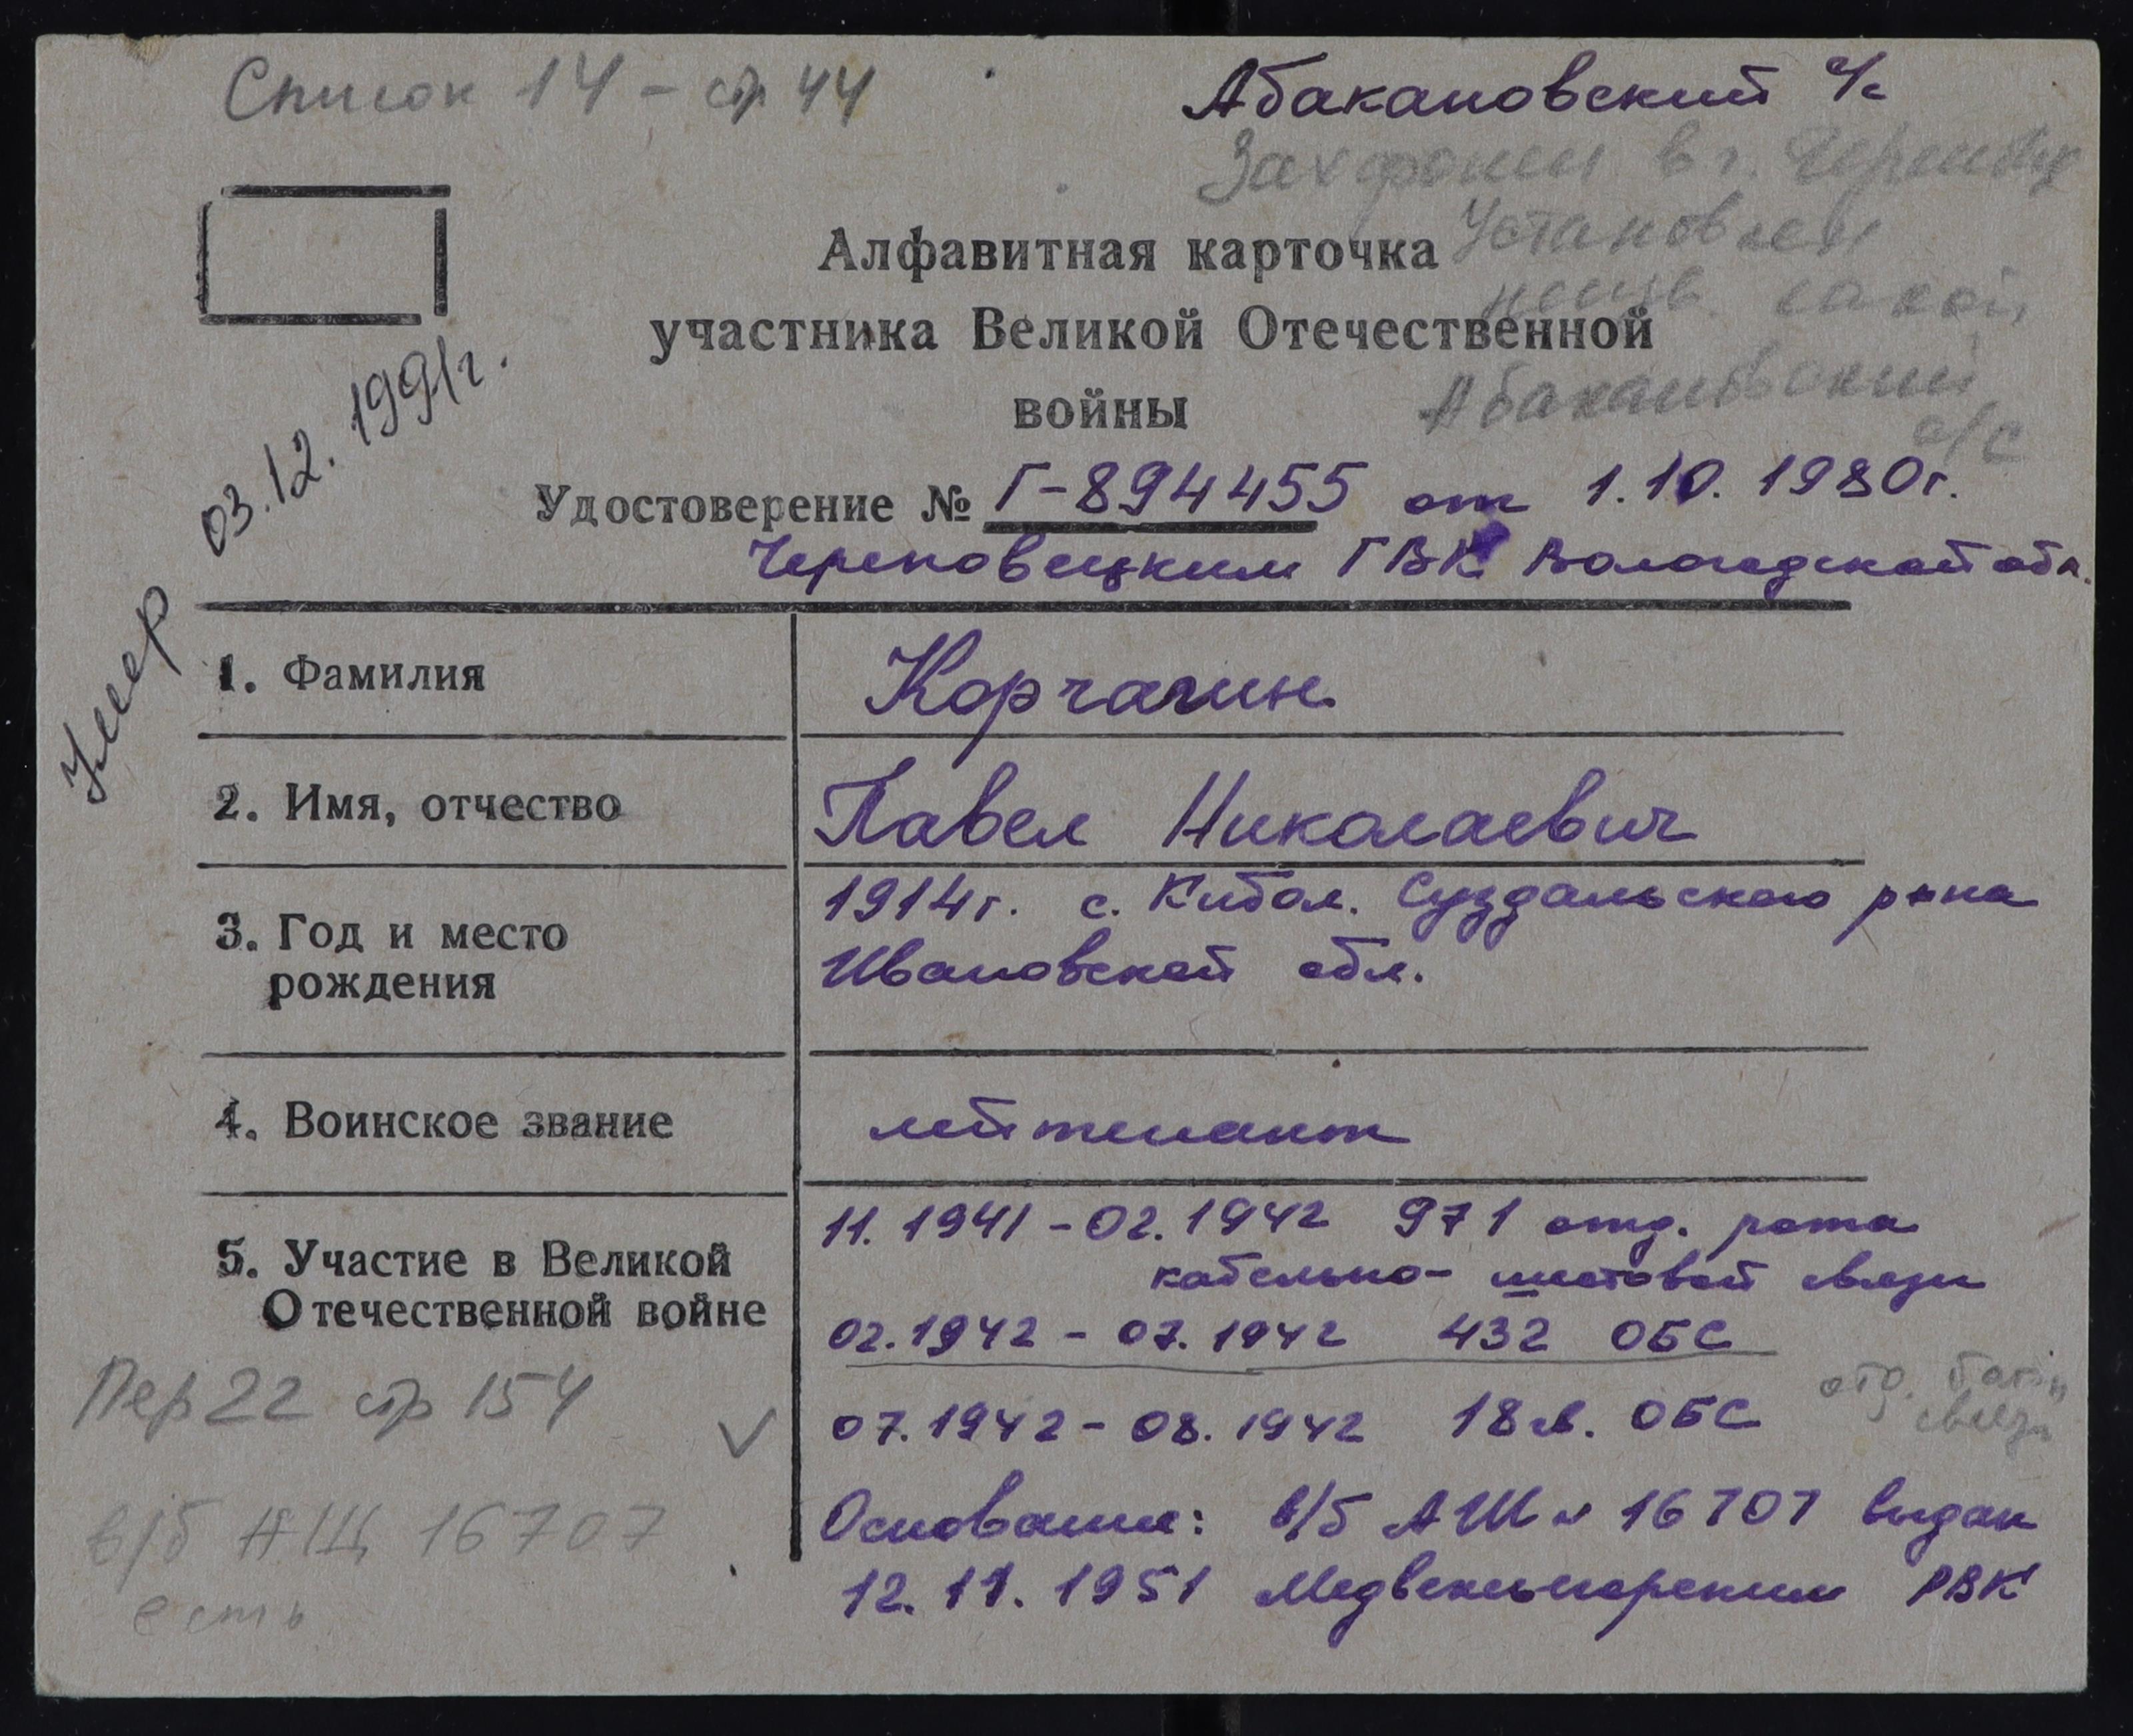 Список 14 – стр 44
Абакановский с/с
Захоронен в г. Череповце
Установлен
Абакановский
с/с
Алфавитная карточка
участника Великой Отечественной
войны
Удостоверение № Г-894455 от 1.10.1980г.
Череповецким ГВК Вологодской обл.
Умер 03.12.1991г.
1. Фамилия
Корчагин
2. Имя, отчество
Павел Николаевич
3. Год и место
рождения
1914г. с. Кибол. Суздальского р-на
Ивановской обл.
4. Воинское звание
лейтенант
5. Участие в Великой
Отечественной войне
11.1941 – 02.1942 971 отд. рота
кабельно- шестовой связи
02.1942 – 07.1942 432 ОБС
07.1942 – 08.1942 18 ОБС
отд. бат-н
связи
Основание: в/б АЩ № 16707 выдан
12.11.1951 Медвежьегорским РВК
Пер 22 стр 154
в/б АЩ 16707
есть